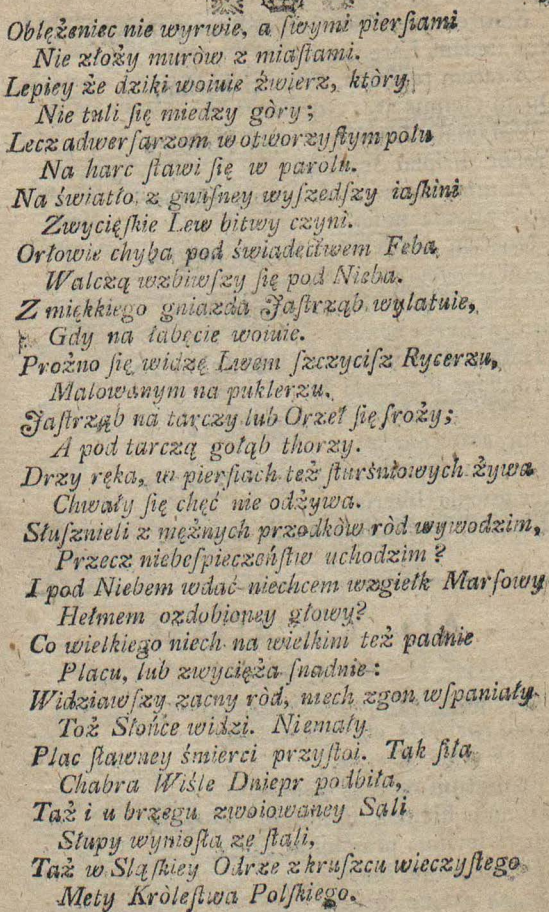 Oblężeniec nie wyrwie, a ſwymi pierſiami
Nie złoży murów z miaſtami.
Lepiey że dziki woiuie źwierz, który
Nie tuli ſię miedzy gòry;
Lecz adwerſarzom w otworzyſtym polu
Na harc ſtawi ſię w parolu.
Na światło z gnuſney wyszedſzy iaſkini
Zwycięſkie Lew bitwy czyni.
Orłowie chyba pod świadectwem Feba
Walczą wzbiwſzy ſię pod Nieba.
Z miękkiego gniazda Jaſtrząb wylatuie,
Gdy na łabęcie woiuie.
Prożno ſię widzę Lwem ſzczyciſz Rycerzu,
Malowanym na puklerzu.
Jaſtrząb na tarczy lub Orzeł ſię ſroży;
A pod tarczą gołąb thorzy.
Drzy ręka, w pierſiach też żywa
Chwały ſię chęć nie odżywa.
Słuſznieli z mężnych przodków ròd wywodzim,
Przecz niebeſpieczeńſtw uchodzim?
I pod Niebem wdać niechcem wzgiełk Marſowy
Hełmem ozdobioney głowy?
Co wielkiego niech na wielkim też padnie
Placu, lub zwycięża ſnadnie:
Widziawſzy zacny ròd, niech zgon wſpaniały
Toż Słońce widzi. Niemały
Plac ſławney śmierci przyſtoi. Tak ſiła
Chabra Wiśle Dniepr podbiła,
Taż i u brzegu zwoiowaney Sali
Słupy wynioſła ze ſtali,
Taż w Sląſkiey Odrze z kruſzcu wieczyſtego
Mety Kròleſtwa Polſkiego.